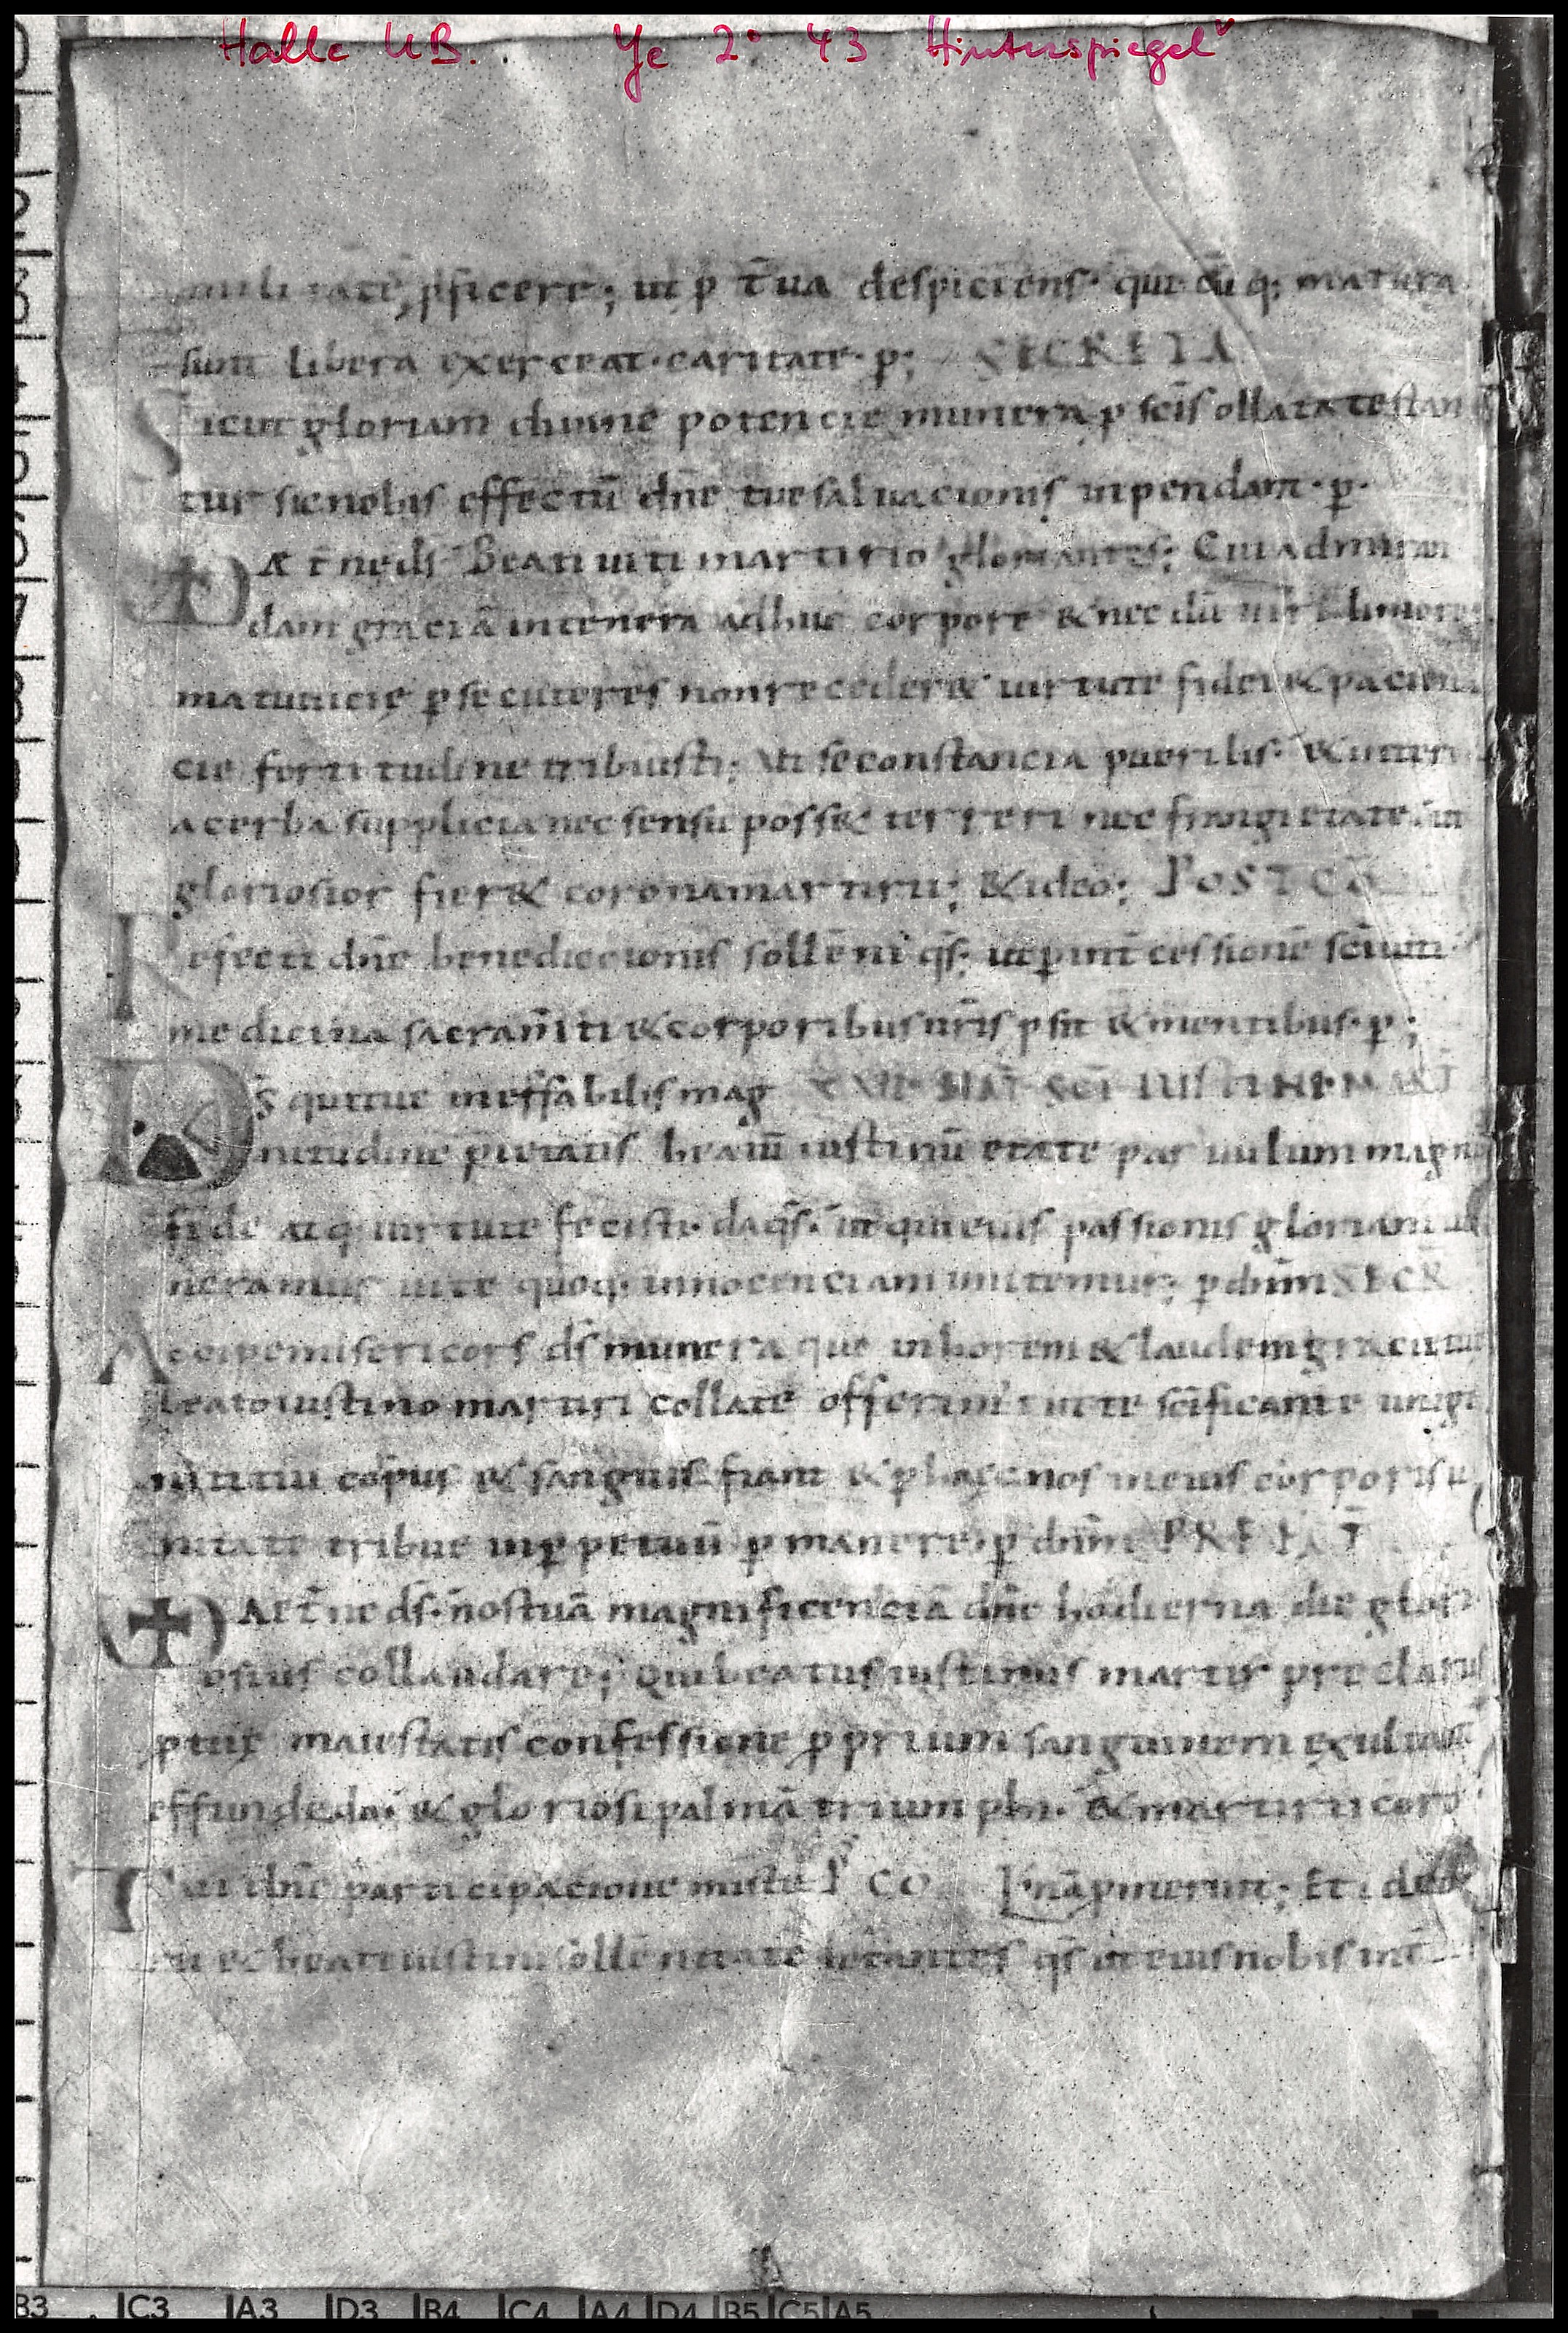 Halle UB. Ye 2° 43 Hinterspiegel v
militate, ꝓficere; ut p̱ t̄ua despiciens· que cū q; matura
sunt libera exerceat·caritate·p̱; SECRETA
Sicut gloriam diuinę potencie munera p̱ sc̄is ollata testan
tur sic nobis effectū dn̄e tue saluacionis inpendant·p̱·
Æt̄ne ds̄ Beati uiti martirio gloriantes; Cui admiran
dam graciā in tenera adhuc corpore & nec dū
maturitcię p̱secutores non receder& uirtute fidei & pacien
cie fortitudine tribuisti; Ut se constancia puerilis· & inter
acerba supplicia nec sensu poss& terreri nec frangi etate·
gloriosior fier& corona martirii; & ideo; POST CŌ
Refecti dn̄e benediccionis sollēni qs̄; ut p̱ int̄cessionē sc̄i uiti
medicina sacram̄ti & corporibus nr̄is ꝓsit & mentibus·p̱;
Ds̄ qui tue ineffabilis mag NAT̄ SC̄I IUSTINI MART
nitudine pietatis beatū iustinū etate paruulum magnū
fide atq; uirtute fecisti·da qs̄·ut qui eius passionis gloriam ue
neramus uite quoq; innocenciam imitemur; p̱ dn̄m SECR̄
Accipe misericors ds̄ munera que in horem & laudem gracie tue
beato iustino martiri collate offerim' ut te sc̄ificante unige
niti tui cor̄pus & sanguis fiant & p̱ haec nos in eius corporis u
nitate tribue in p̱petuū p̱manere·p̱ dn̄m PREFAT̄
Aet̄ne ds̄·nos tuā magnificenciā dn̄e hodierna die glori
osius collaudare; Qui beatus iustinus martir preclarus
ꝓ tuę maiestatis confessione ꝓprium sanguinem exultauit
effundeda· & gloriosi palmā triumphi· & martirii coro
Tui dn̄e participacione P CO nā ꝓmeruit; Et ideo
ti & beati iustini sollēnitate letantes qs̄ ut eius nobis int̄
B3 C3 A3 D3 B4 C4 A4 D4 B5 C5 A5